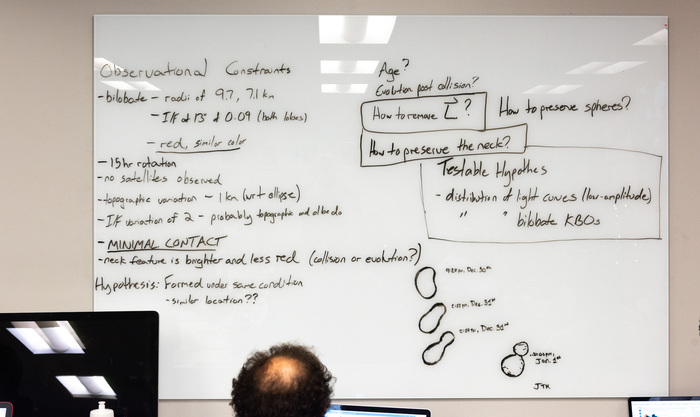 Observational Constraints
- bilobate - radii of 9.7, 7.1 km
- I/F at 13° of 0.09 (both lobes)
- red, similar color
- 15 hr rotation
- no satellites observed
- topographic variation - 1 km (wrt ellipse)
- I/F variation of 2 - probably topographic and albedo
- MINIMAL CONTACT
- neck feature is brighter and less red (collision or evolution?)
Hypothesis: Formed under same condition
- similar location??
Age?
Evolution post collision?
How to remove L?
How to preserve spheres?
How to preserve the neck?
Testable Hypothes
- distribution of light curves (low-amplitude)
" " bilobate KBOs
Dec. 30th
Dec. 31st
Dec. 31st
Jan. 1st
JTK